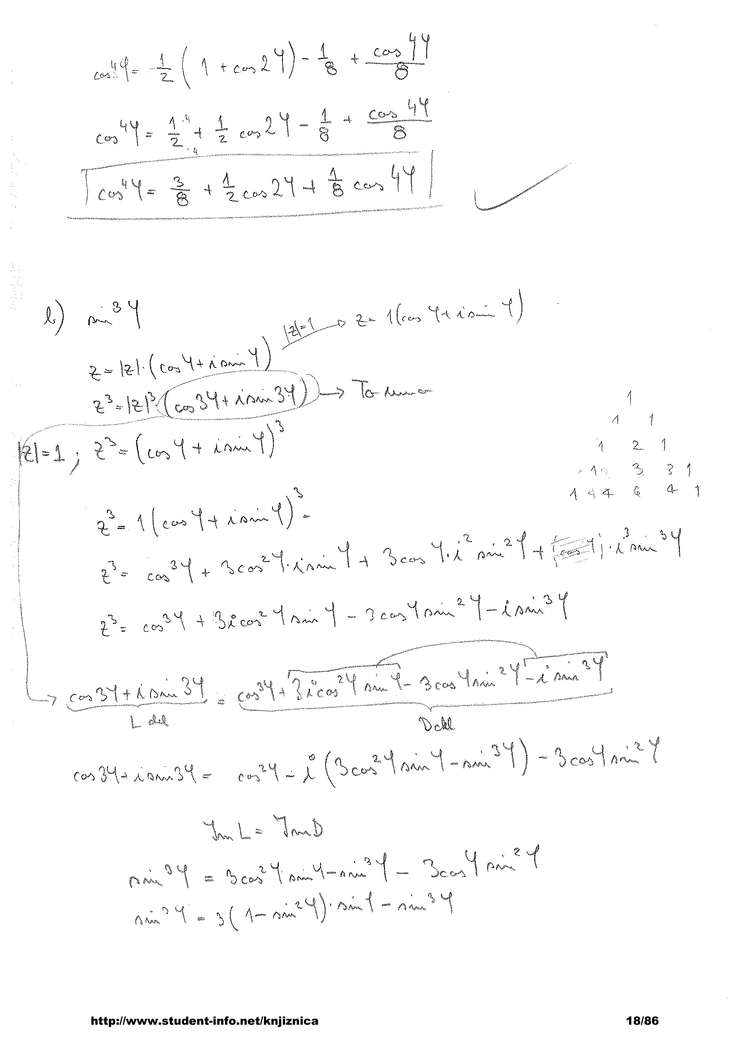 cos⁴φ = 1/2 (1 + cos2φ) - 1/8 + cos4φ/8
cos⁴φ = 1·4/2·4 + 1/2 cos2φ - 1/8 + cos4φ/8
cos⁴φ = 3/8 + 1/2 cos2φ + 1/8 cos4φ
b) sin³φ
|z|=1 → z = 1(cosφ + i sinφ)
z = |z|·(cosφ + i sinφ)
z³ = |z|³·(cos3φ + i sin3φ) → To
|z|=1 ; z³ = (cosφ + i sinφ)³
z³ = 1(cosφ + i sinφ)³ =
z³ = cos³φ + 3cos²φ·i sinφ + 3cosφ·i² sin²φ + i³ sin³φ
z³ = cos³φ + 3i cos²φ sinφ - 3cosφ sin²φ - i sin³φ
1
1 1
1 2 1
1 3 3 1
1 4 6 4 1
cos3φ + i sin3φ = cos³φ + 3i cos²φ sinφ - 3cosφ sin²φ - i sin³φ
L del D del
cos3φ + i sin3φ = cos²φ - i (3cos²φ sinφ - sin³φ) - 3cosφ sin²φ
Im L = Im D
sin³φ = 3cos²φ sinφ - sin³φ - 3cosφ sin²φ
sin³φ = 3(1 - sin²φ)·sinφ - sin³φ
http://www.student-info.net/knjiznica 18/86